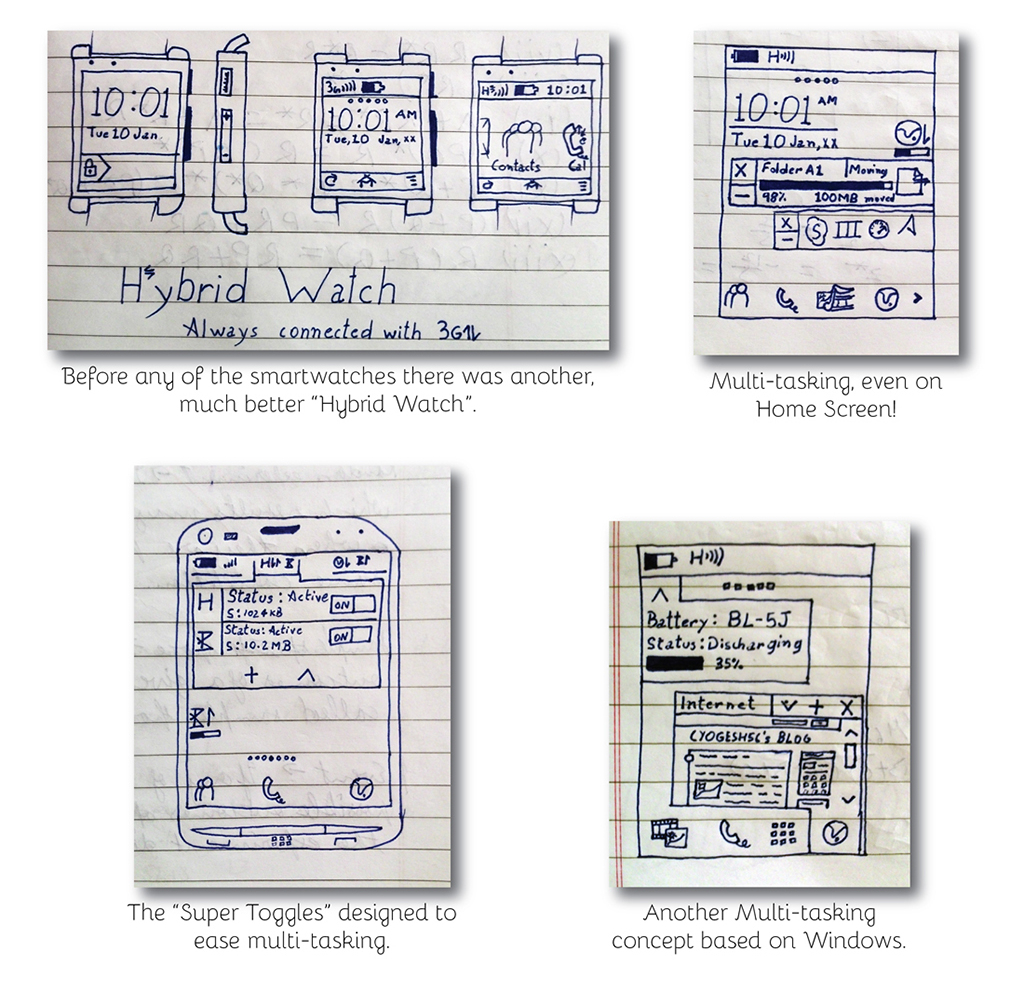 10:01
Tue 10 Jan.
3G
10:01 AM
Tue, 10 Jan, xx
H 10:01
Contacts Cal
Hybrid Watch
Always connected with 3G
Before any of the smartwatches there was another,
much better “Hybrid Watch”.
H
10:01 AM
Tue 10 Jan, xx
X Folder A1 Moving
98% 100MB moved
X S
Multi-tasking, even on
Home Screen!
H
H Status : Active ON
S: 1024 KB
Status: Active ON
S: 10.2 MB
The “Super Toggles” designed to
ease multi-tasking.
H
Battery: BL-5J
Status: Discharging
35%
Internet X
CYOGESH56's BLOG
Another Multi-tasking
concept based on Windows.